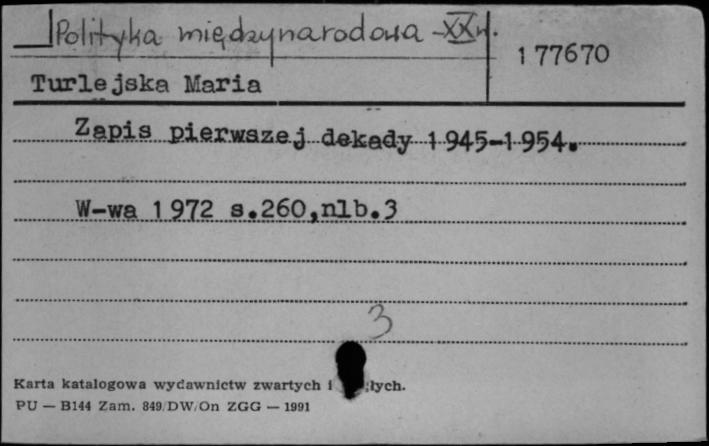 Polityka międzynarodowa - XX w.
177670
Turlejska Maria
Zapis pierwszej dekady 1945-1954.
W-wa 1972 s.260,nlb.3
3
Karta katalogowa wydawnictw zwartych i
PU — B144 Zam. 849/DW/On ZGG — 1991